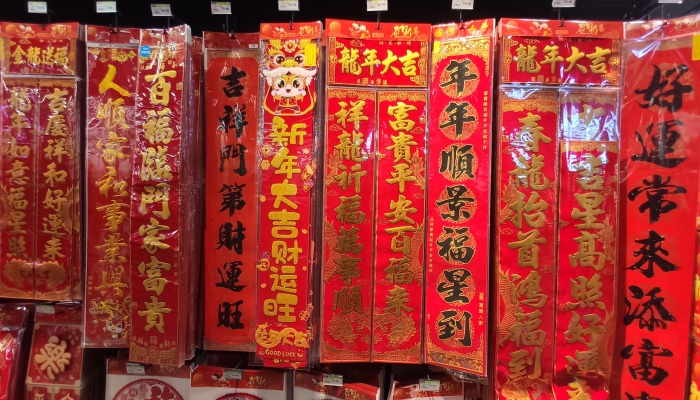 金龍送福
吉慶祥和好運來
龍年如意福星照
人順家和事業興
百福臨門家富貴
吉祥門第財運旺
新年大吉财运旺
GOOD LUCK
龍年大吉
祥龍祈福萬事順
富貴平安百福來
年年順景福星到
龍年大吉
春龍抬首鴻福到
吉星高照好運來
好運常來添富